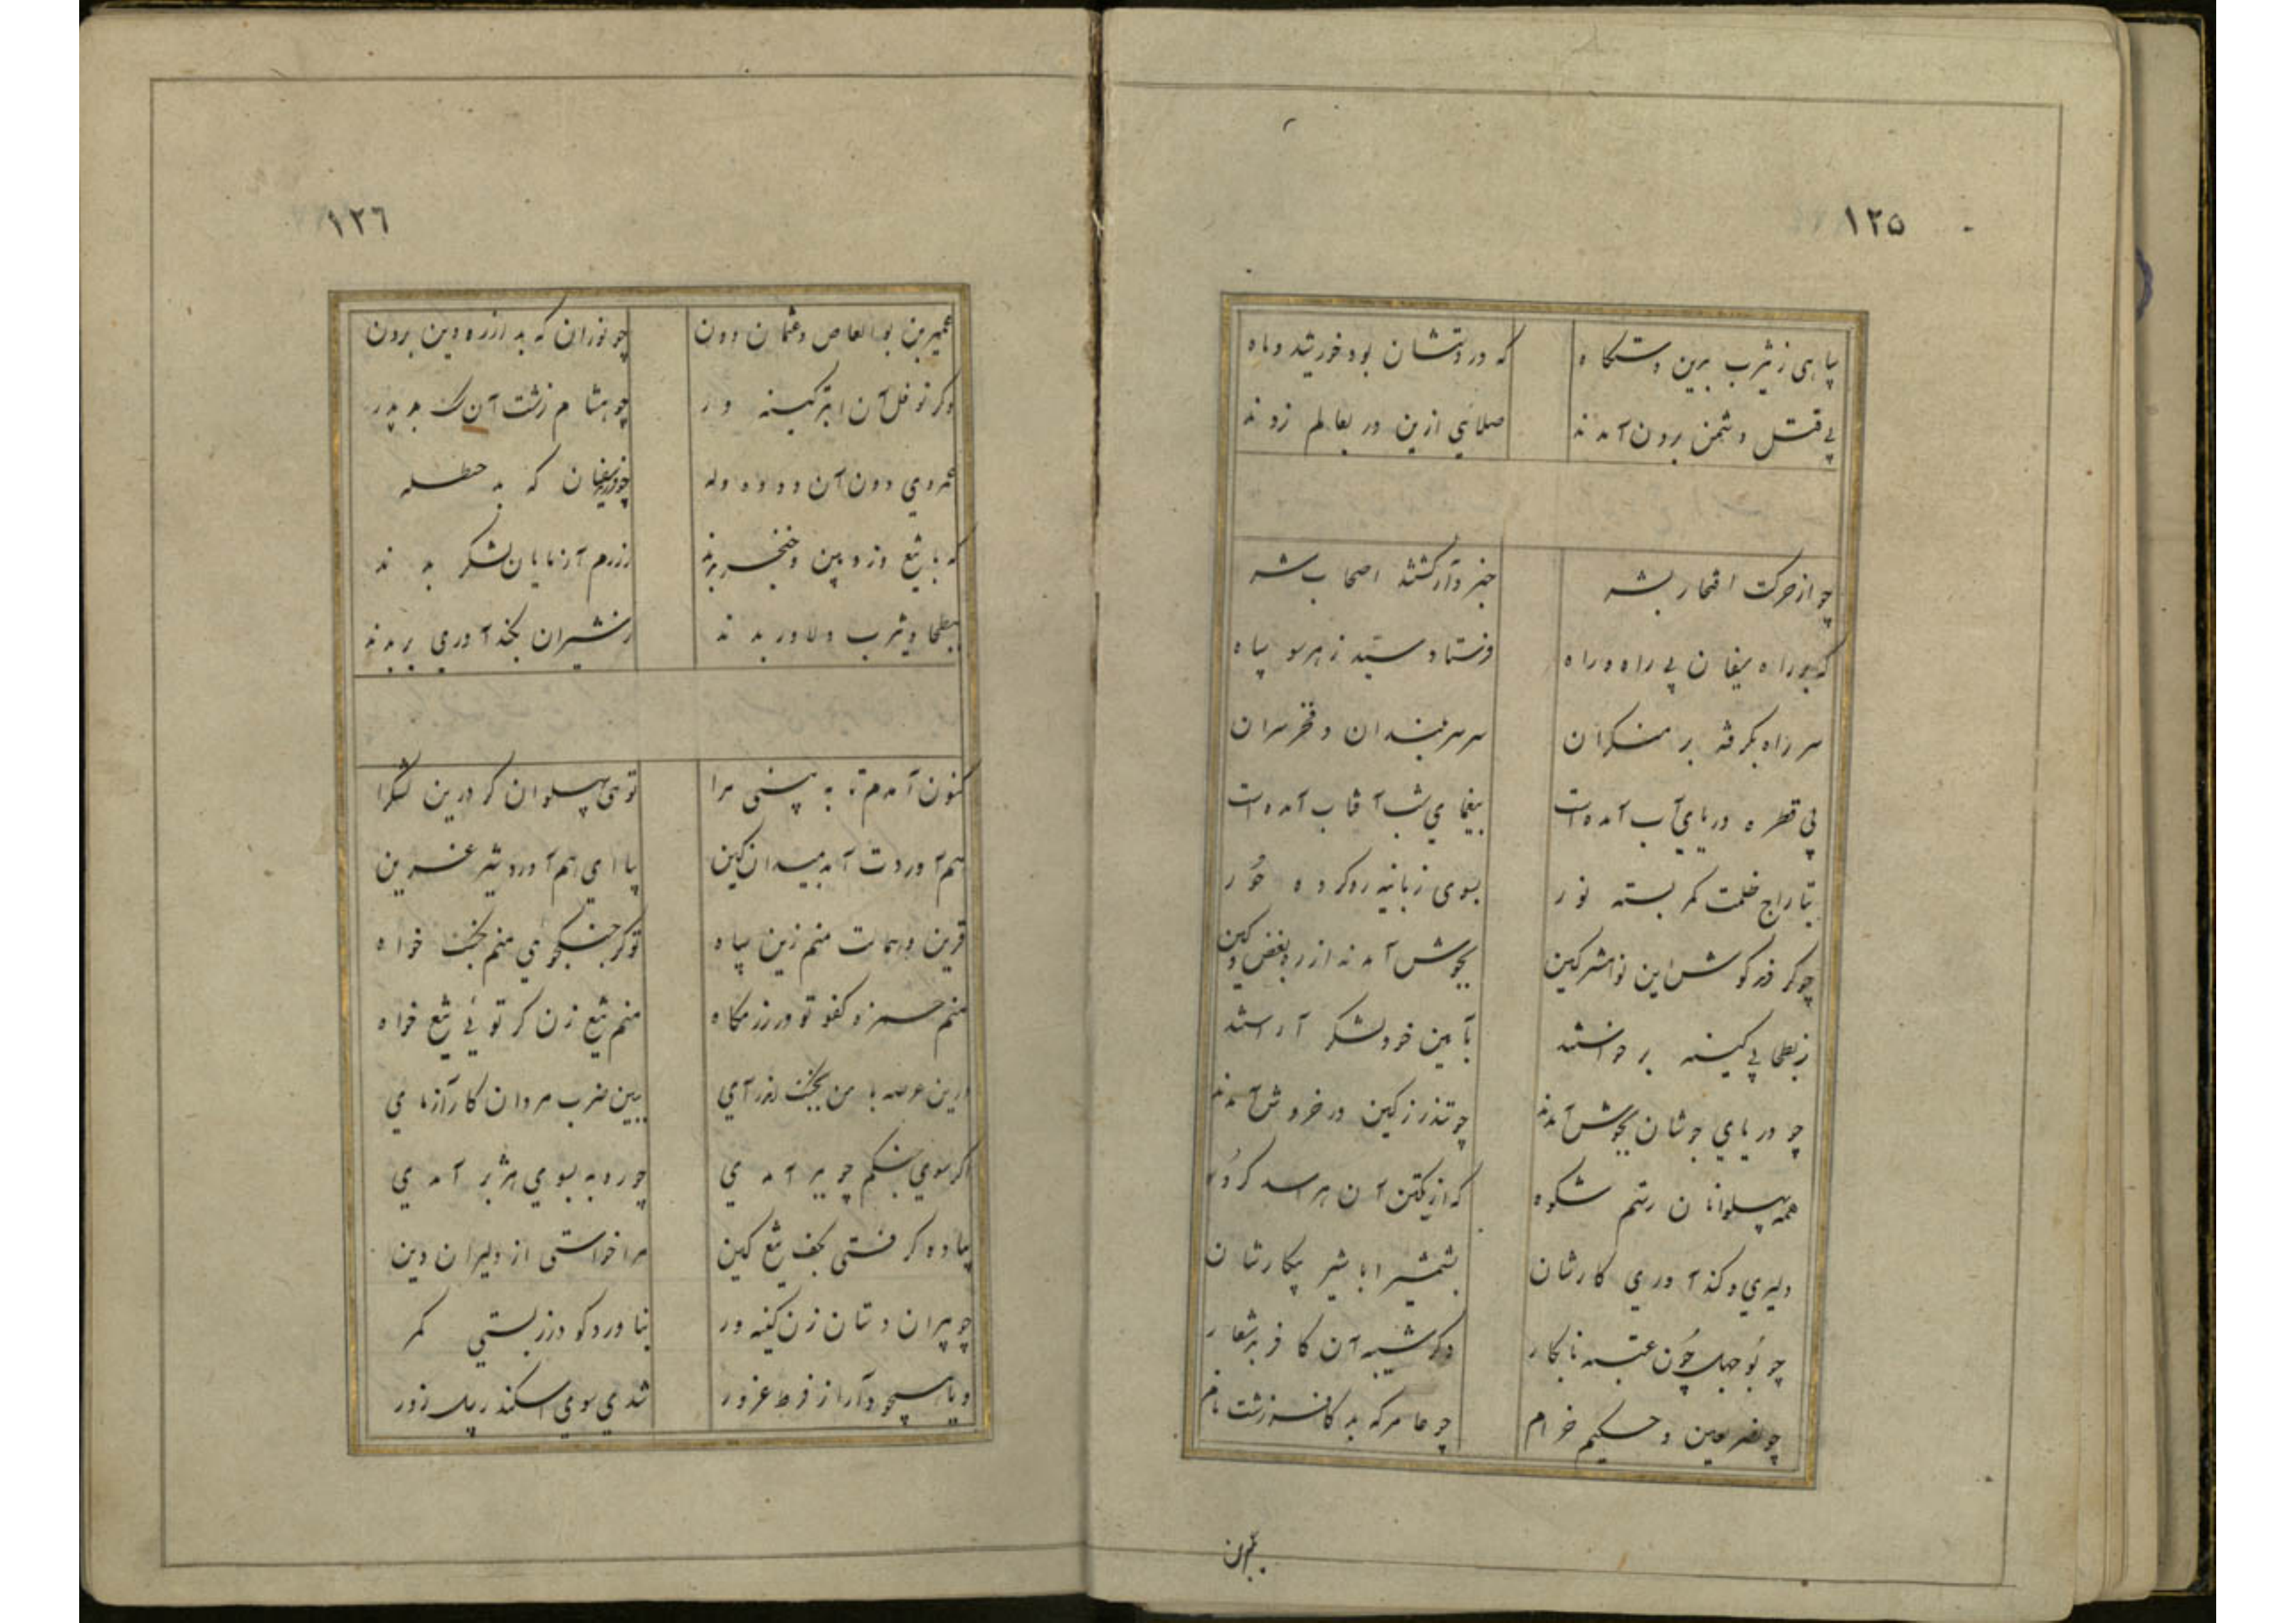 ۱۲۵
سپاهی ز یثرب برین دستگاه که در دستشان بود خورشید و ماه
پی قتل دشمن برون آمدند صلائی ازین در بعالم زدند
چو از حرکت افتخار بشر خبردار گشتند اصحاب شر
که بر راه سفیان پی راه دراه فرستاد سید ز هر سو سپاه
سر راه بگرفته بر منکران سر سربلندان و فخر سران
پی قطره دریای آب آمده است بیغمای شب آفتاب آمده است
بتاراج ظلمت کمر بسته نور بسوی زبانیه رو کرده حور
چو کردند گوش این نوا مشرکین بجوش آمدند از ره بغض و کین
ز بطحا پی کینه برخواستند بآیین خود لشکر آراستند
چو دریای جوشان بجوش آمدند چو تندر ز کین در خروش آمدند
همه پهلوانان رستم شکوه که از یکتن آن هراسد گروه
دلیری و کندآوری کارشان بشمشیر ابا شیر پیکارشان
چو بوجهل چون عتبه نابکار دگر شیبه آن کافر بدشعار
چو نضر لعین و حکیم خرام چو عامر که بد کافر زشت نام
عمیر بن
۱۲٦
عمیر بن بوالعاص و عثمان دون چو نوران که بد از ره دین برون
دگر نوفل آن ابتر کینه ور چو هشام زشت آن سگ بد پدر
عمروی دون آن دد و اه وله سفیان که بد حنظله
که با تیغ و زوبین و خنجر بدند رزم آزمایان لشکر بدند
ببطحا و یثرب دلاور بدند ز شیران بکندآوری بر بدند
کنون آمدم تا به بینی مرا توئی پهلوان گر درین لشگرا
هم آوردت آمد بمیدان کین بیا ای هم آورد شیر عرین
قرین و همالت منم زین سپاه تو گر جنگجوی منم جنگ خواه
منم حمزه کفو تو در رزمگاه منم تیغ زن گر توئی تیغ خواه
درین عرصه با من بجنگ اندر آی ببین ضرب مردان کارآزمای
اگر سوی جنگم چو ببر آمدی چو روبه بسوی هژبر آمدی
پیاده گرفتی بکف تیغ کین مرا خواستی از دلیران دین
چو پیران دستان زن کینه ور بناورد گودرز بستی کمر
و یا همچو دارا ز فرط غرور شدی سوی اسکندر پیل زور